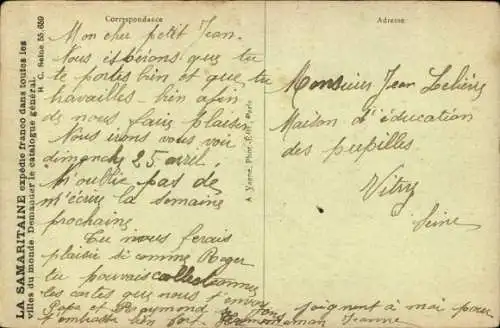 Correspondance
Mon cher petit Jean.
Nous espérons que tu
te portes bien et que tu
travailles bien afin
de nous faire plaisir
Nous irons vous voir
dimanche 25 avril.
N'oublie pas de
m'écrire la semaine
prochaine
Tu nous ferais
plaisir si comme Roger
tu pouvais collectionner
les cartes que nous t'envoyons
Papa et Raymond se joignent à moi pour
t'embrasser bien fort. maman Jeanne
Adresse
Monsieur Jean
Maison d'éducation
des pupilles
Vitry
Seine
LA SAMARITAINE expédie franco dans toutes les
villes du monde. Demander le catalogue général.
R. C. Seine 55.659
Phot. Édit. Paris